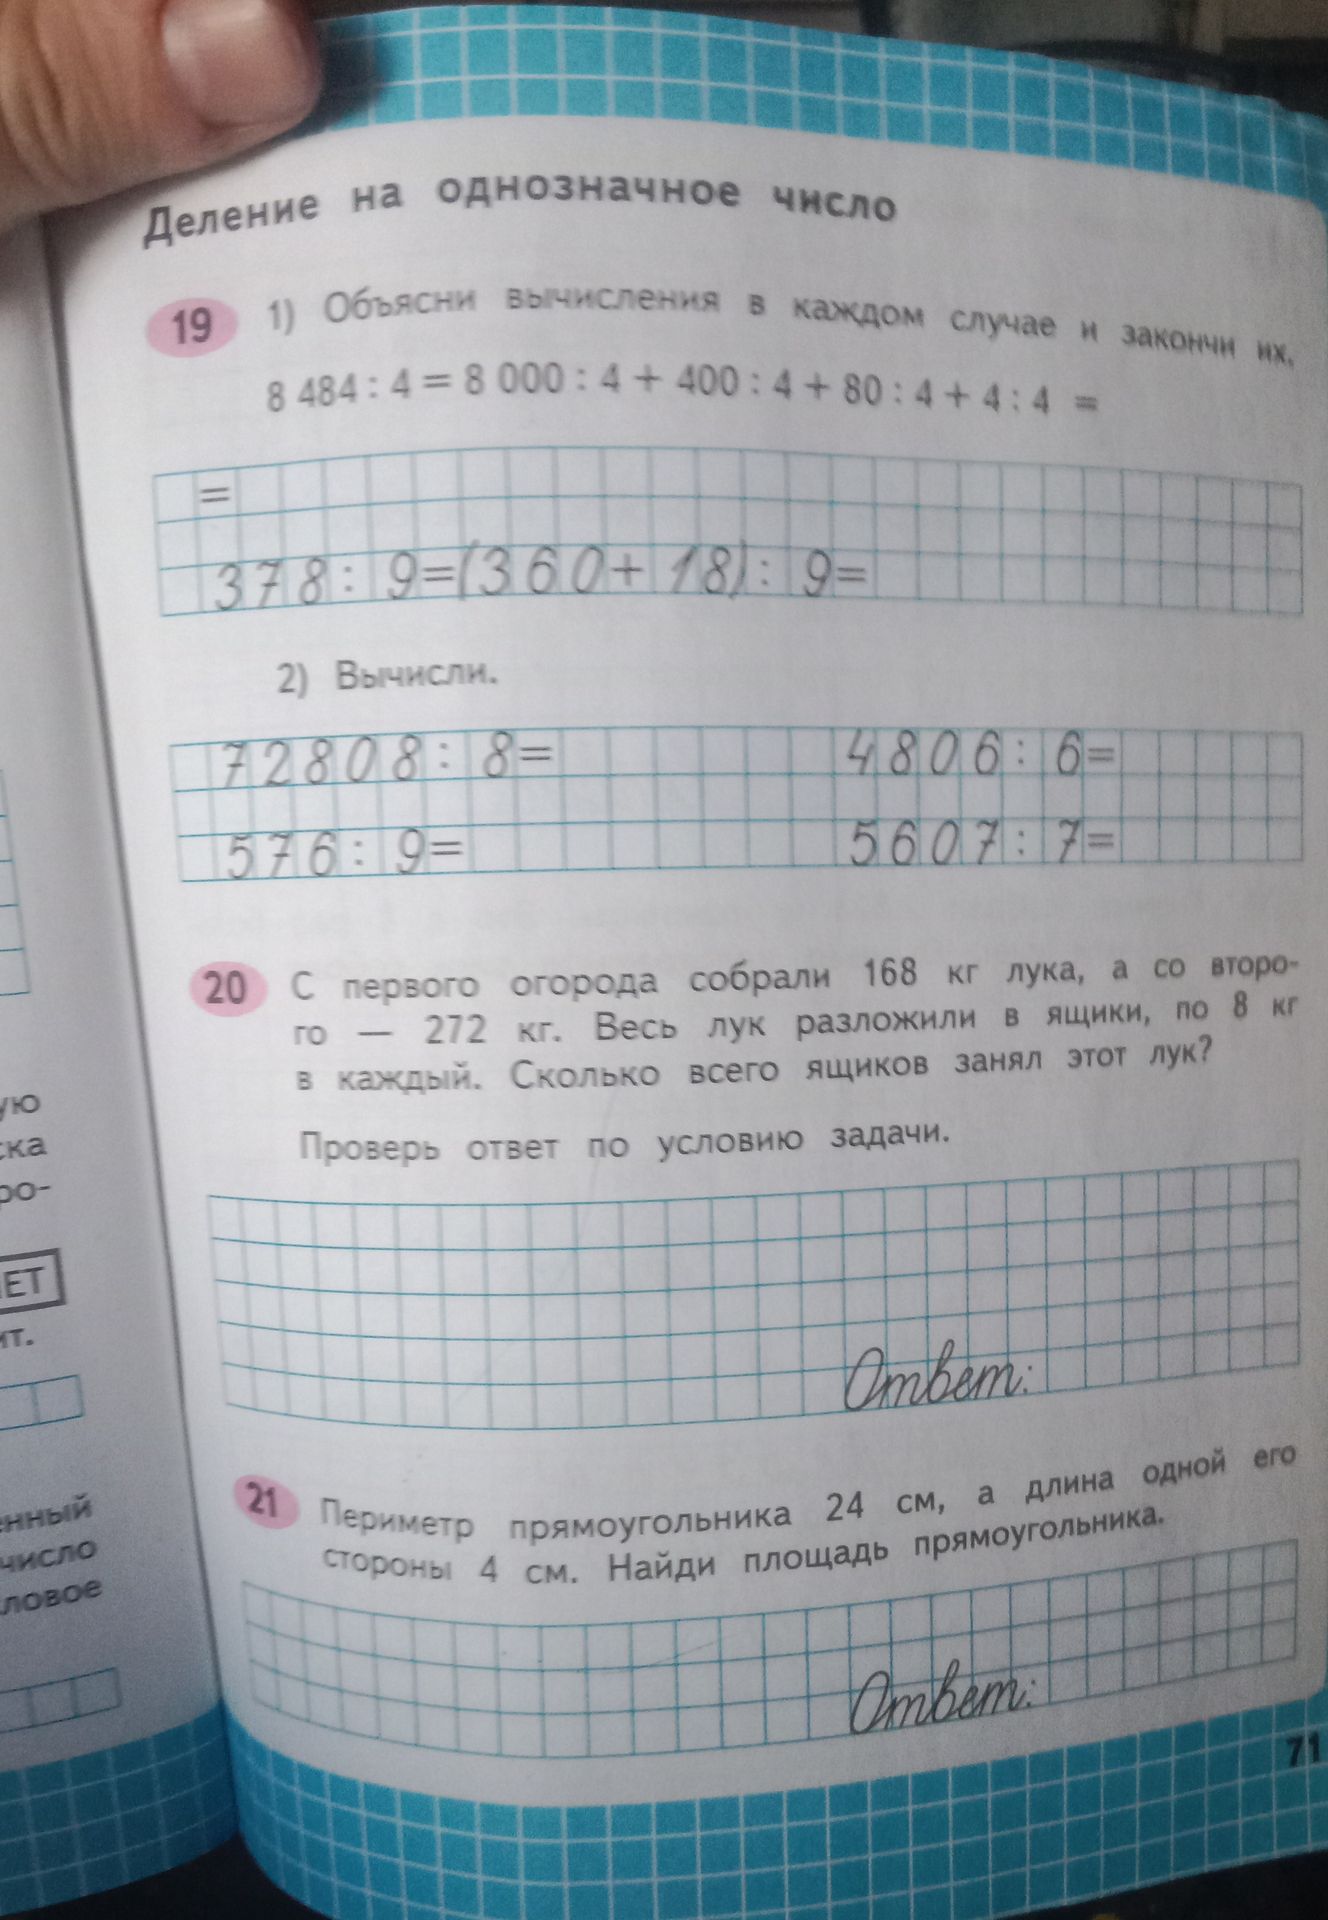 Деление на однозначное число
19 1) Объясни вычисления в каждом случае и закончи их.
8 484 : 4 = 8 000 : 4 + 400 : 4 + 80 : 4 + 4 : 4 =
=
378 : 9=(360+ 18) : 9=
2) Вычисли.
72808 : 8= 4806 : 6=
576 : 9= 5607 : 7=
20 С первого огорода собрали 168 кг лука, а со второ-
го — 272 кг. Весь лук разложили в ящики, по 8 кг
в каждый. Сколько всего ящиков занял этот лук?
Проверь ответ по условию задачи.
Ответ:
21 Периметр прямоугольника 24 см, а длина одной его
стороны 4 см. Найди площадь прямоугольника.
Ответ:
71